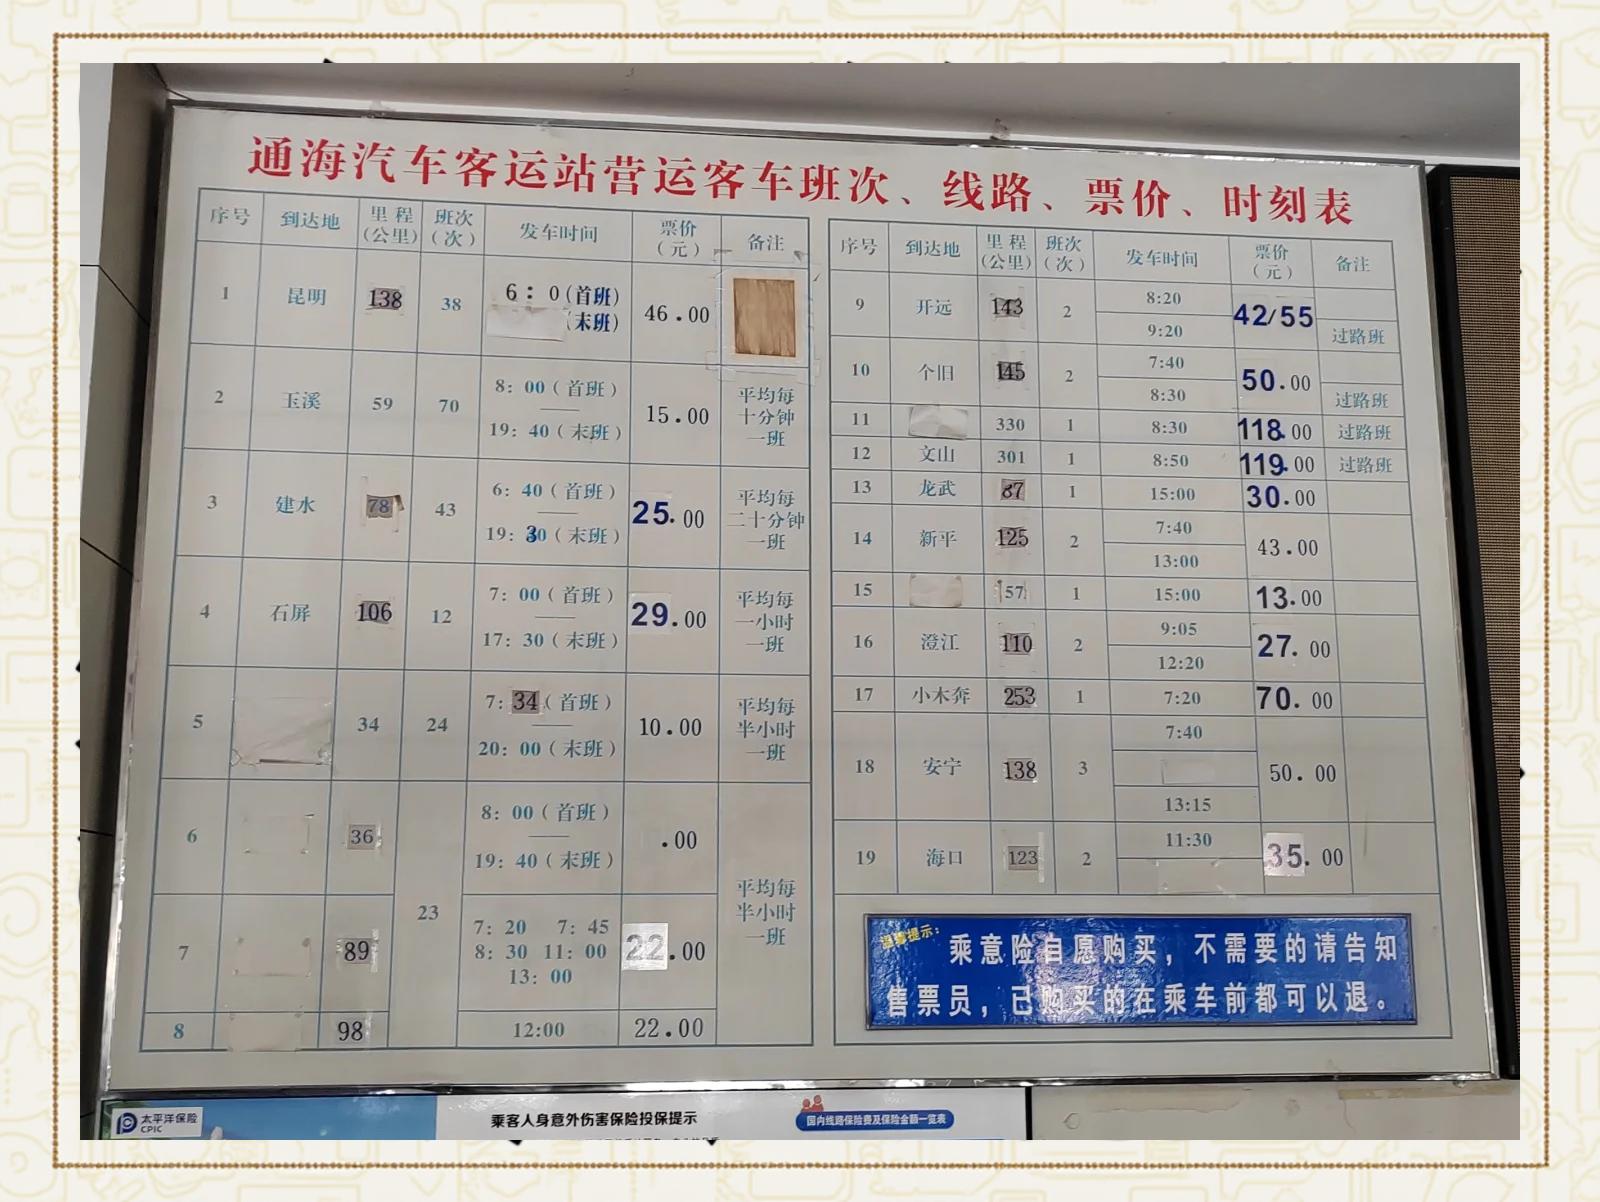 通海汽车客运站营运客车班次、线路、票价、时刻表
序号 到达地 里程(公里) 班次(次) 发车时间 票价(元) 备注
1 昆明 138 38 6: 0(首班) (末班) 46.00
2 玉溪 59 70 8: 00(首班) 19: 40(末班) 15.00 平均每十分钟一班
3 建水 78 43 6: 40(首班) 19: 30(末班) 25.00 平均每二十分钟一班
4 石屏 106 12 7: 00(首班) 17: 30(末班) 29.00 平均每一小时一班
5 34 24 7: 34(首班) 20: 00(末班) 10.00 平均每半小时一班
6 36 23 8: 00(首班) 19: 40(末班) .00 平均每半小时一班
7 89 7: 20 7: 45 8: 30 11: 00 13: 00 22.00
8 98 12:00 22.00
序号 到达地 里程(公里) 班次(次) 发车时间 票价(元) 备注
9 开远 143 2 8:20 42/55
9:20 过路班
10 个旧 145 2 7:40 50.00
8:30 过路班
11 330 1 8:30 118.00 过路班
12 文山 301 1 8:50 119.00 过路班
13 龙武 87 1 15:00 30.00
14 新平 125 2 7:40 43.00
13:00
15 57 1 15:00 13.00
16 澄江 110 2 9:05 27.00
12:20
17 小木奔 253 1 7:20 70.00
18 安宁 138 3 7:40 50.00
13:15
19 海口 123 2 11:30 35.00
温馨提示:
乘意险自愿购买，不需要的请告知
售票员，已购买的在乘车前都可以退。
太平洋保险
CPIC
乘客人身意外伤害保险投保提示
国内线路保险费及保险金额一览表